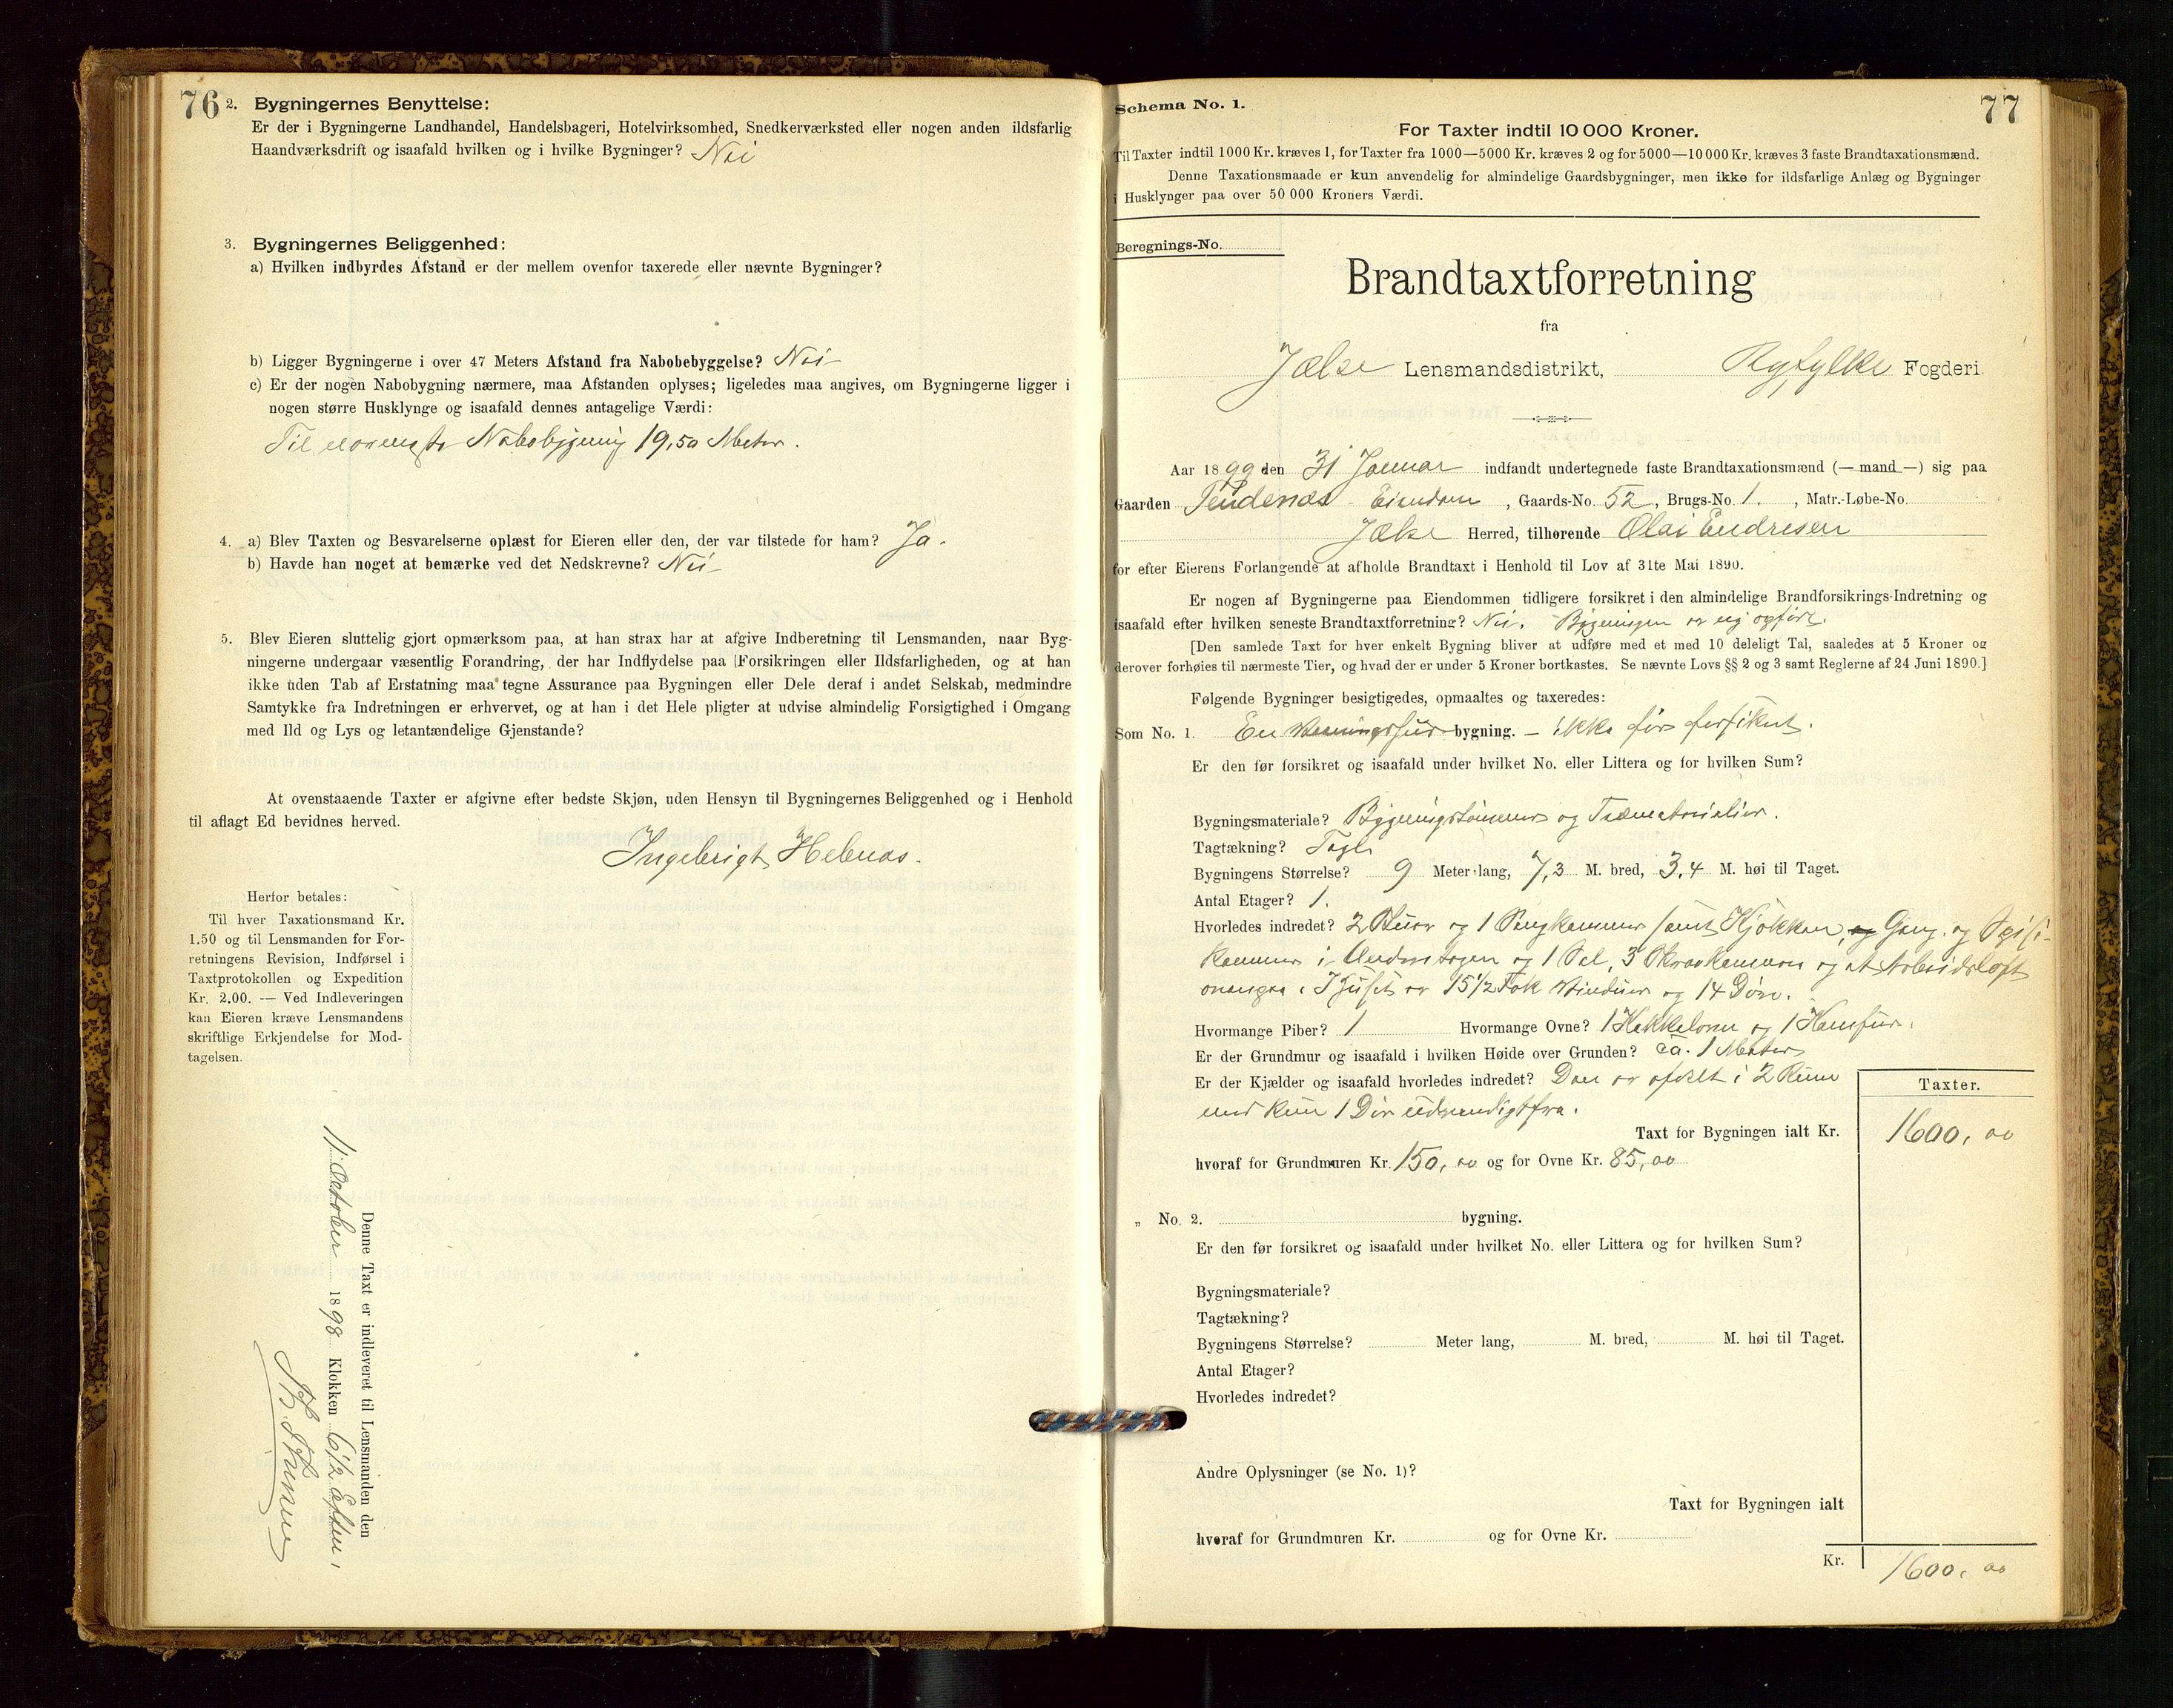 76
2. Bygningernes Benyttelse:
Er der i Bygningerne Landhandel, Handelsbageri, Hotelvirksomhed, Snedkerværksted eller nogen anden ildsfarlig
Haandværksdrift og isaafald hvilken og i hvilke Bygninger? Nei
3. Bygningernes Beliggenhed:
a) Hvilken indbyrdes Afstand er der mellem ovenfor taxerede eller nævnte Bygninger?
b) Ligger Bygningerne i over 47 Meters Afstand fra Nabobebyggelse? Nei
c) Er der nogen Nabobygning nærmere, maa Afstanden oplyses; ligeledes maa angives, om Bygningerne ligger i
nogen større Husklynge og isaafald dennes antagelige Værdi:
Til nærmeste Nabobygning 19,50 Meter.
4. a) Blev Taxten og Besvarelserne oplæst for Eieren eller den, der var tilstede for ham? Ja.
b) Havde han noget at bemærke ved det Nedskrevne? Nei
5. Blev Eieren sluttelig gjort opmærksom paa, at han strax har at afgive Indberetning til Lensmanden, naar Byg-
ningerne undergaar væsentlig Forandring, der har Indflydelse paa Forsikringen eller Ildsfarligheden, og at han
ikke uden Tab af Erstatning maa tegne Assurance paa Bygningen eller Dele deraf i andet Selskab, medmindre
Samtykke fra Indretningen er erhvervet, og at han i det Hele pligter at udvise almindelig Forsigtighed i Omgang
med Ild og Lys og letantændelige Gjenstande?
At ovenstaaende Taxter er afgivne efter bedste Skjøn, uden Hensyn til Bygningernes Beliggenhed og i Henhold
til aflagt Ed bevidnes herved.
Ingebrigt Helmås.
Herfor betales:
Til hver Taxationsmand Kr.
1.50 og til Lensmanden for For-
retningens Revision, Indførsel i
Taxtprotokollen og Expedition
Kr. 2.00. — Ved Indleveringen
kan Eieren kræve Lensmandens
skriftlige Erkjendelse for Mod-
tagelsen.
Denne Taxt er indleveret til Lensmanden den
11 October 1898 Klokken 6 1/2 Efterm.
77
Schema No. 1.
For Taxter indtil 10 000 Kroner.
Til Taxter indtil 1000 Kr. kræves 1, for Taxter fra 1000—5000 Kr. kræves 2 og for 5000—10 000 Kr. kræves 3 faste Brandtaxationsmænd.
Denne Taxationsmaade er kun anvendelig for almindelige Gaardsbygninger, men ikke for ildsfarlige Anlæg og Bygninger
i Husklynger paa over 50 000 Kroners Værdi.
Beregnings-No.
Brandtaxtforretning
fra
Jælse Lensmandsdistrikt, Ryfylke Fogderi.
Aar 1899 den 31 Januar indfandt undertegnede faste Brandtaxationsmænd (— mand —) sig paa
Gaarden Tendenæs Eiendom, Gaards-No. 52, Brugs-No. 1., Matr.-Løbe-No.
Jælse Herred, tilhørende Olai Endresen
for efter Eierens Forlangende at afholde Brandtaxt i Henhold til Lov af 31te Mai 1890.
Er nogen af Bygningerne paa Eiendommen tidligere forsikret i den almindelige Brandforsikrings-Indretning og
isaafald efter hvilken seneste Brandtaxtforretning? Nei. Bygningen er ny opført.
[Den samlede Taxt for hver enkelt Bygning bliver at udføre med et med 10 deleligt Tal, saaledes at 5 Kroner og
derover forhøies til nærmeste Tier, og hvad der er under 5 Kroner bortkastes. Se nævnte Lovs §§ 2 og 3 samt Reglerne af 24 Juni 1890.]
Følgende Bygninger besigtigedes, opmaaltes og taxeredes:
Som No. 1. En Vaaningshus bygning. — ikke før forsikret.
Er den før forsikret og isaafald under hvilket No. eller Littera og for hvilken Sum?
Bygningsmateriale? Bygningstømmer og Træmaterialier.
Tagtækning? Tagl.
Bygningens Størrelse? 9 Meter lang, 7,3 M. bred, 3,4 M. høi til Taget.
Antal Etager? 1.
Hvorledes indredet? 2 Stuer og 1 Sengkammer samt Kjøkken, og Gang og Spise-
kammer i Underetagen og 1 Sal, 3 Skraakammere og et Arbeidsloft
ovenpaa i Huset er 15 1/2 Fak Vinduer og 14 Døre.
Hvormange Piber? 1 Hvormange Ovne? 1 Kakkelovn og 1 Komfur.
Er der Grundmur og isaafald i hvilken Høide over Grunden? ca. 1 Meter
Er der Kjælder og isaafald hvorledes indredet? Den er afdelt i 2 Rum
med kun 1 Dør udvendigtfra.
Taxter.
Taxt for Bygningen ialt Kr. 1600,00
hvoraf for Grundmuren Kr. 150,00 og for Ovne Kr. 85,00
„ No. 2. bygning.
Er den før forsikret og isaafald under hvilket No. eller Littera og for hvilken Sum?
Bygningsmateriale?
Tagtækning?
Bygningens Størrelse? Meter lang, M. bred, M. høi til Taget.
Antal Etager?
Hvorledes indredet?
Andre Oplysninger (se No. 1)?
Taxt for Bygningen ialt
hvoraf for Grundmuren Kr. og for Ovne Kr.
Kr. 1600,00